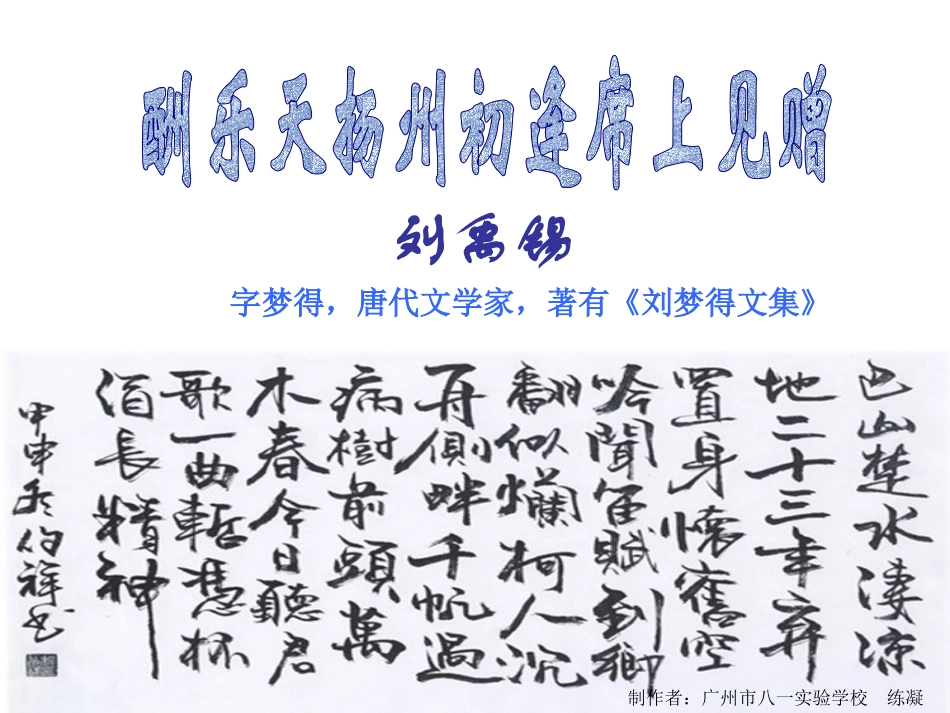 酬乐天扬州初逢席上见赠
刘禹锡
字梦得，唐代文学家，著有《刘梦得文集》
巴山楚水淒涼
地二十三年弃
置身懷舊空
吟聞笛賦到鄉
翻似爛柯人沉
舟側畔千帆過
病樹前頭萬
木春今日聽君
歌一曲暫憑杯
酒長精神
甲申冬伯祥书
制作者：广州市八一实验学校 练凝